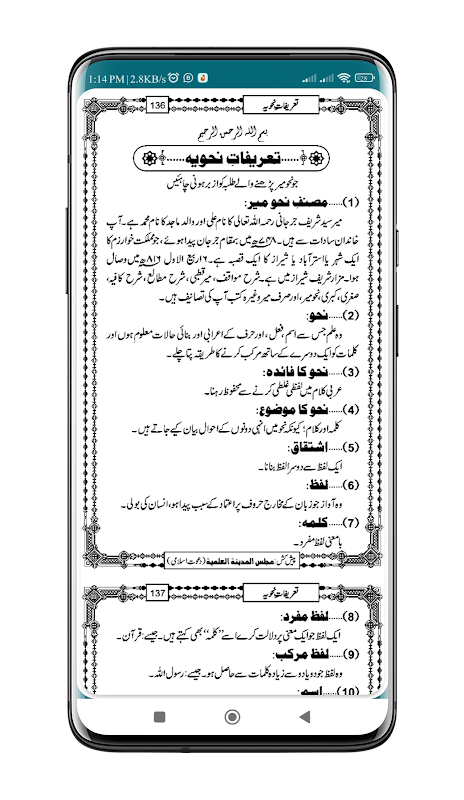 1:14 PM | 2.8KB/s
تعریفاتِ نحویہ
136
بسم اللہ الرحمن الرحیم
تعریفاتِ نحویہ
جو نحو میر پڑھنے والے طلبہ کو ازبر ہونی چاہئیں
(1).....مصنف نحو میر:
میر سید شریف جرجانی رحمہ اللہ تعالی کا نام علی اور والد ماجد کا نام محمد ہے۔ آپ
خاندان سادات سے ہیں۔ ۷۳۸ھ میں بمقام جرجان پیدا ہوئے، جو مملکت خوارزم کا
ایک شہر یا استرآباد یا شیراز کا ایک قصبہ ہے۔ ۱۶ ربیع الاول ۸۱۶ھ میں وصال
ہوا۔ مزار شریف شیراز میں ہے۔ شرح مواقف، میر قطبی، شرح مطالع، شرح کافیہ،
صغری، کبری، نحو میر، اور صرف میر وغیرہ کتب آپ کی تصانیف ہیں۔
(2).....نحو:
وہ علم جس سے اسم، فعل، اور حرف کے اعرابی اور بنائی حالات معلوم ہوں اور
کلمات کو ایک دوسرے کے ساتھ مرکب کرنے کا طریقہ پتا چلے۔
(3).....نحو کا فائدہ:
عربی کلام میں لفظی غلطی کرنے سے محفوظ رہنا۔
(4).....نحو کا موضوع:
کلمہ اور کلام؛ کیونکہ نحو میں انہی دونوں کے احوال بیان کیے جاتے ہیں۔
(5).....اشتقاق:
ایک لفظ سے دوسرا لفظ بنانا۔
(6).....لفظ:
وہ آواز جو زبان کے مخارج حروف پر اعتماد کے سبب پیدا ہو، انسان کی بولی۔
(7).....کلمہ:
بامعنی لفظ مفرد۔
پیش کش: مجلس المدینۃ العلمیۃ (دعوت اسلامی)
تعریفاتِ نحویہ
137
(8).....لفظ مفرد:
ایک لفظ جو ایک معنی پر دلالت کرے اسے ”کلمہ“ بھی کہتے ہیں۔ جیسے: قرآن۔
(9).....لفظ مرکب:
وہ لفظ جو دو یا دو سے زیادہ کلمات سے حاصل ہو۔ جیسے: رسول اللہ۔
(10).....اسم: